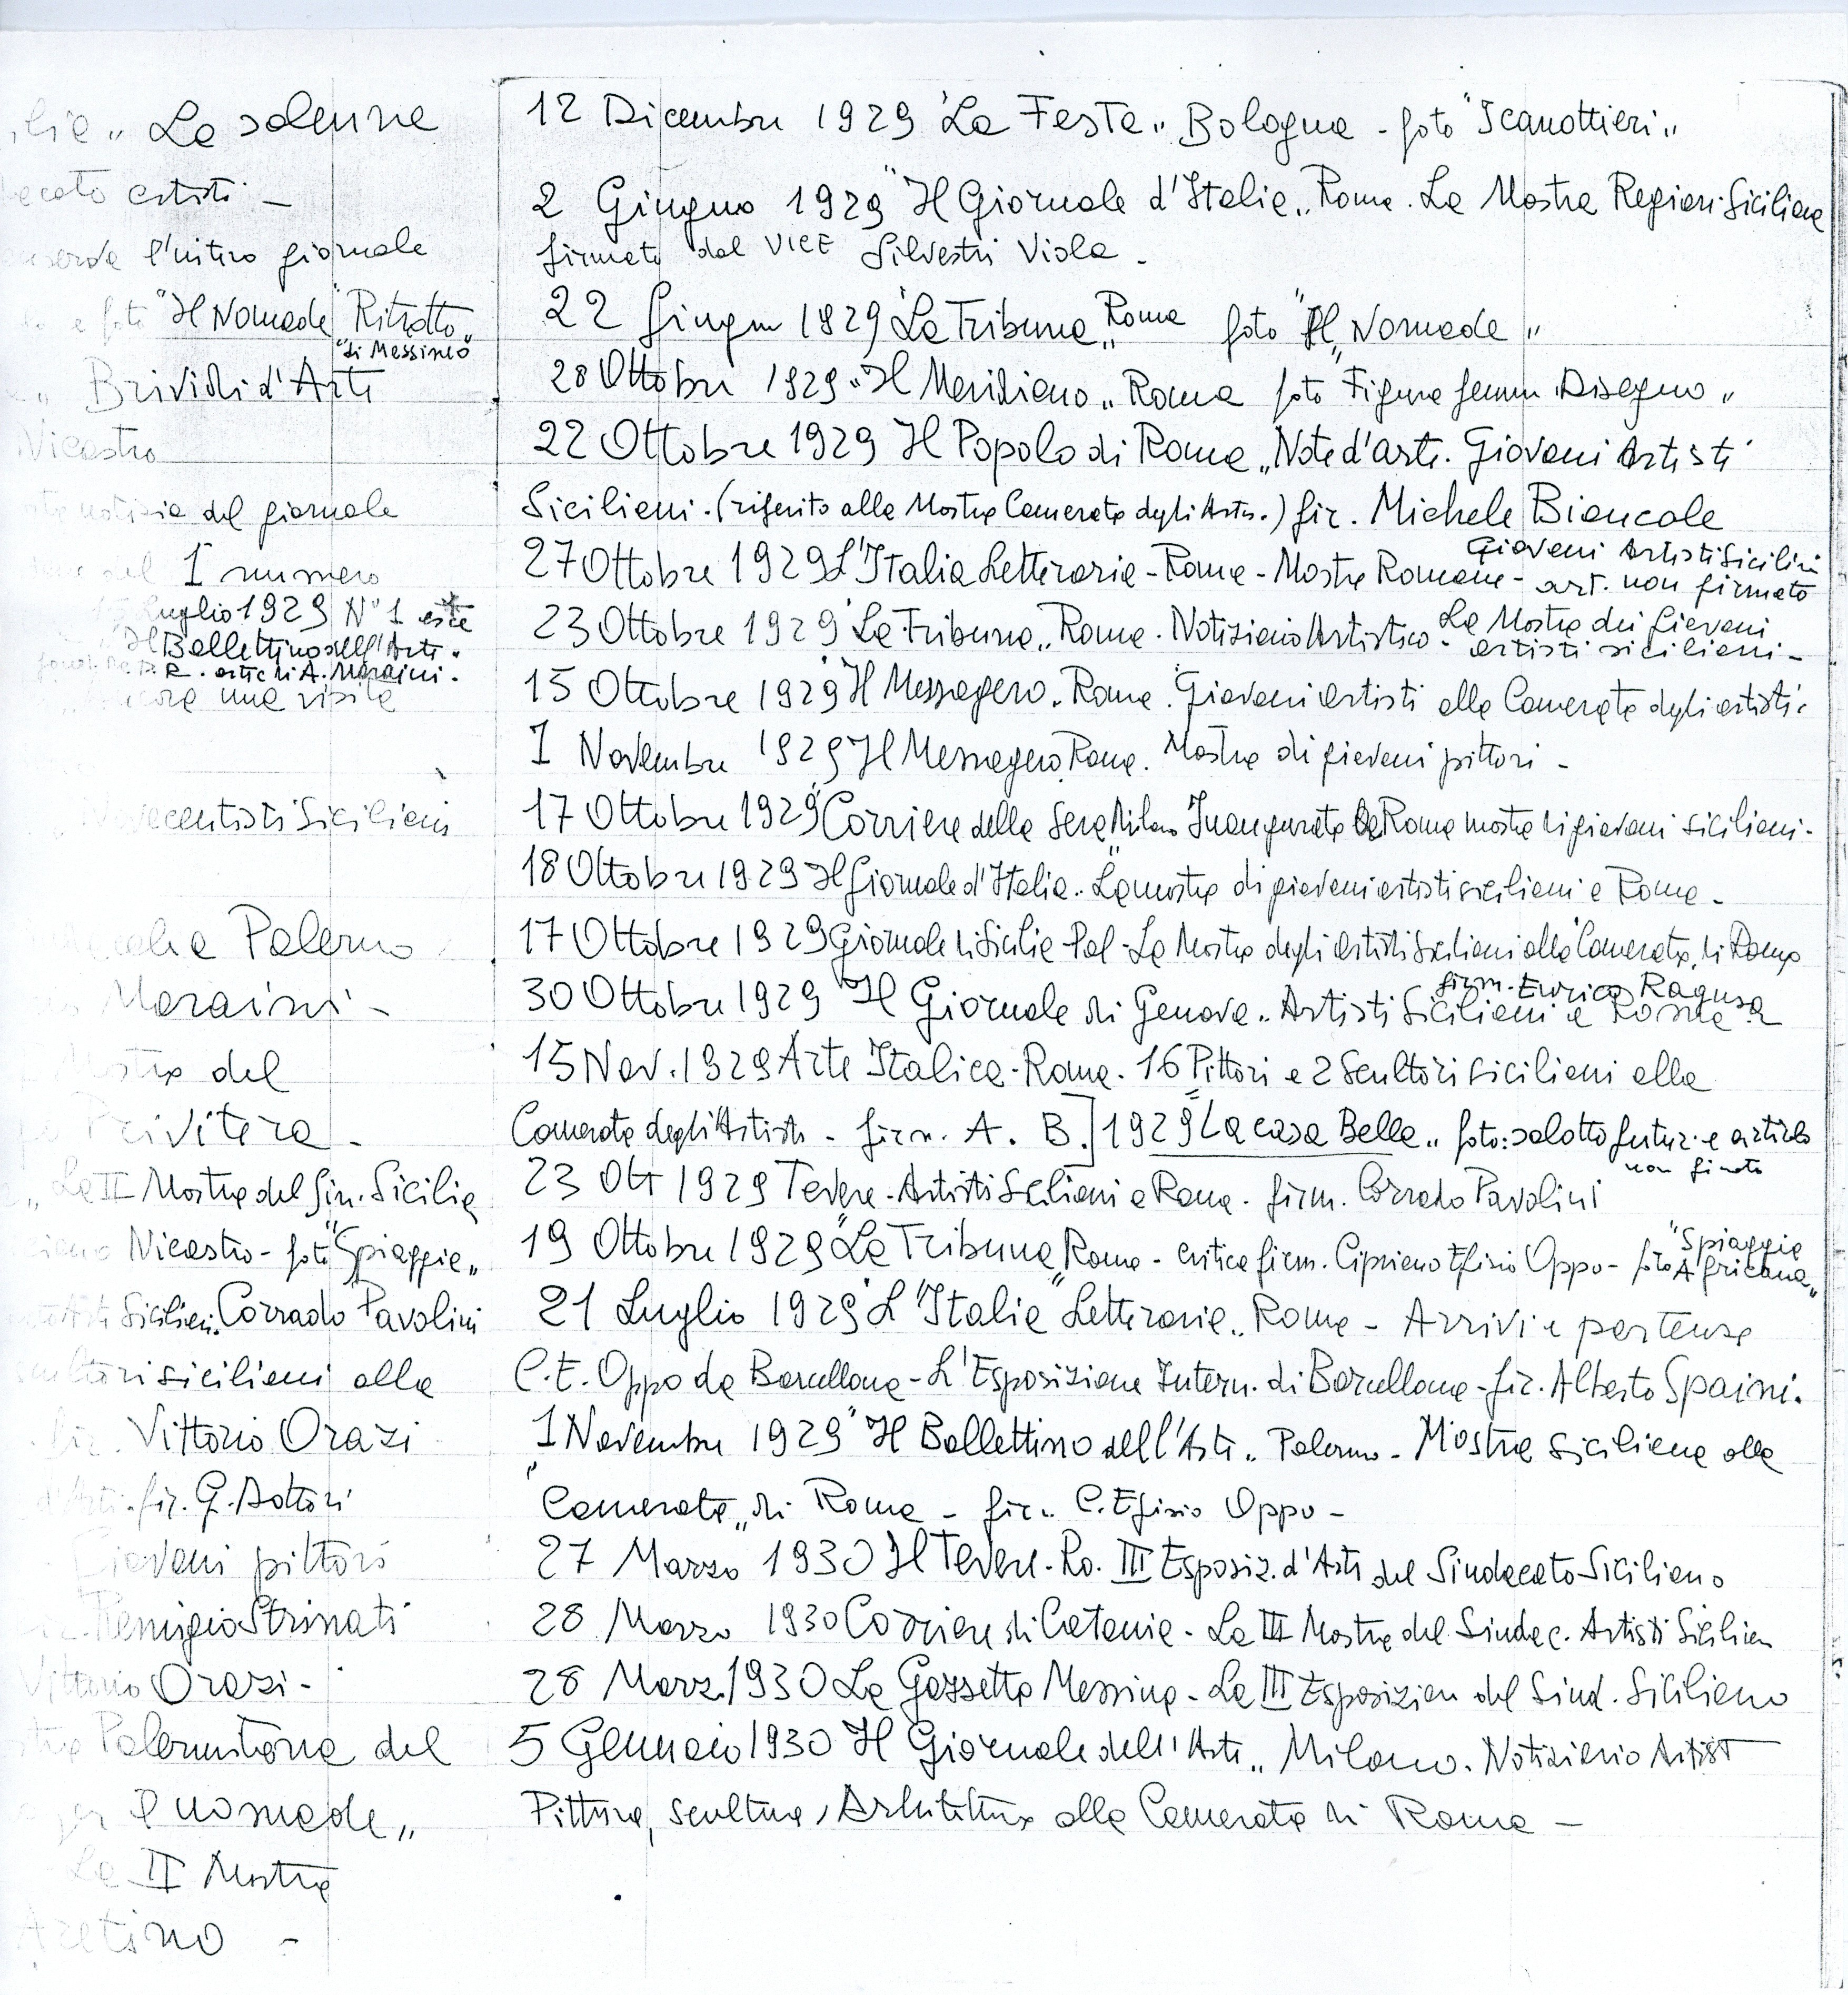 Le solenne
artisti -
l'intiro giornale
e foto "Il Nomade" "Ritratto"
"di Messineo"
Brividi d'Arte
Nicastro
notizia del giornale
del 1° numero
Luglio 1929 N° 1 esce
"Il Bollettino dell'Arte"
R. artic. di A. Maraini.
ancora una visita
Novecentisti Siciliani
Palermo
Maraini -
Mostra del
Privitera -
La II Mostra del Sin. Sicilia
Nicastro - foto "Spiaggie"
Sicilien. Corrado Pavolini
scultori siciliani alla
fir. Vittorio Orazi
d'Arte. fir. G. Dottori
Giovani pittori
Remigio Strinati
Vittorio Orazi -
Palermitana del
nomade"
La II Mostra
Aretino -
12 Dicembre 1929 "La Festa" Bologna - foto "I canottieri"
2 Giugno 1929 "Il Giornale d'Italia" Roma. La Mostra Region. Siciliana
firmato dal VICE Silvestri Viola -
22 Giugn 1929 "La Tribuna" Roma foto "Il Nomade"
28 Ottobre 1929 "Il Meridiano" Roma foto "Figura femm. Disegno"
22 Ottobre 1929 Il Popolo di Roma "Note d'arte. Giovani Artisti
Siciliani. (riferito alla Mostra Camerata degli Artis.) fir. Michele Biancale
27 Ottobre 1929 L'Italia Letteraria - Roma - Mostre Romane - Giovani Artisti Sicilini
art. non firmato
23 Ottobre 1929 "La Tribuna" Roma. Notiziario Artistico - La Mostra dei Giovani
artisti siciliani -
15 Ottobre 1929 "Il Messagero. Roma. Giovani artisti alla Camerata degli artisti.
1 Novembre 1929 Il Messagero Roma. Mostra di giovani pittori -
17 Ottobre 1929 "Corriere della Sera" Milano Inaugurata a Roma mostra di giovani siciliani -
18 Ottobre 1929 Il Giornale d'Italia. La mostra di giovani artisti siciliani a Roma -
17 Ottobre 1929 Giornale di Sicilia Pal - La Mostra degli artisti Siciliani alla "Camerata" di Roma
firm. Enrico Ragusa
30 Ottobre 1929 "Il Giornale di Genova" Artisti Siciliani a Roma
15 Nov. 1929 Arte Italica - Roma - 16 Pittori e 2 Scultori siciliani alla
Camerata degli Artisti - firm. A. B.] 1929 "La casa Bella" foto: salotto futur. e articolo
non firmato
23 Ott 1929 Tevere - Artisti Siciliani a Roma - firm. Corrado Pavolini
19 Ottobre 1929 "La Tribuna" Roma - critica firm. Cipriano Efisio Oppo - foto "Spiaggia
Africana"
21 Luglio 1929 "L'Italia Letteraria" Roma - Arrivi e partenze
C. E. Oppo da Barcellona - L'Esposizione Intern. di Barcellona - fir. Alberto Spaini.
1 Novembre 1929 "Il Bollettino dell'Arte" Palermo - Mostra siciliana alla
"Camerata" di Roma - fir. C. Efisio Oppo -
27 Marzo 1930 Il Tevere - Ro. III Esposiz. d'Arte del Sindacato Siciliano
28 Marzo 1930 Corriere di Catania - La III Mostra del Sindac. Artisti Sicilian
28 Marz. 1930 La Gazzetta Messina - La III Esposizion del Sind. Siciliano
5 Gennaio 1930 Il Giornale dell'Arte" Milano. Notiziario Artist
Pittura, scultura, Architettura alla Camerata di Roma -